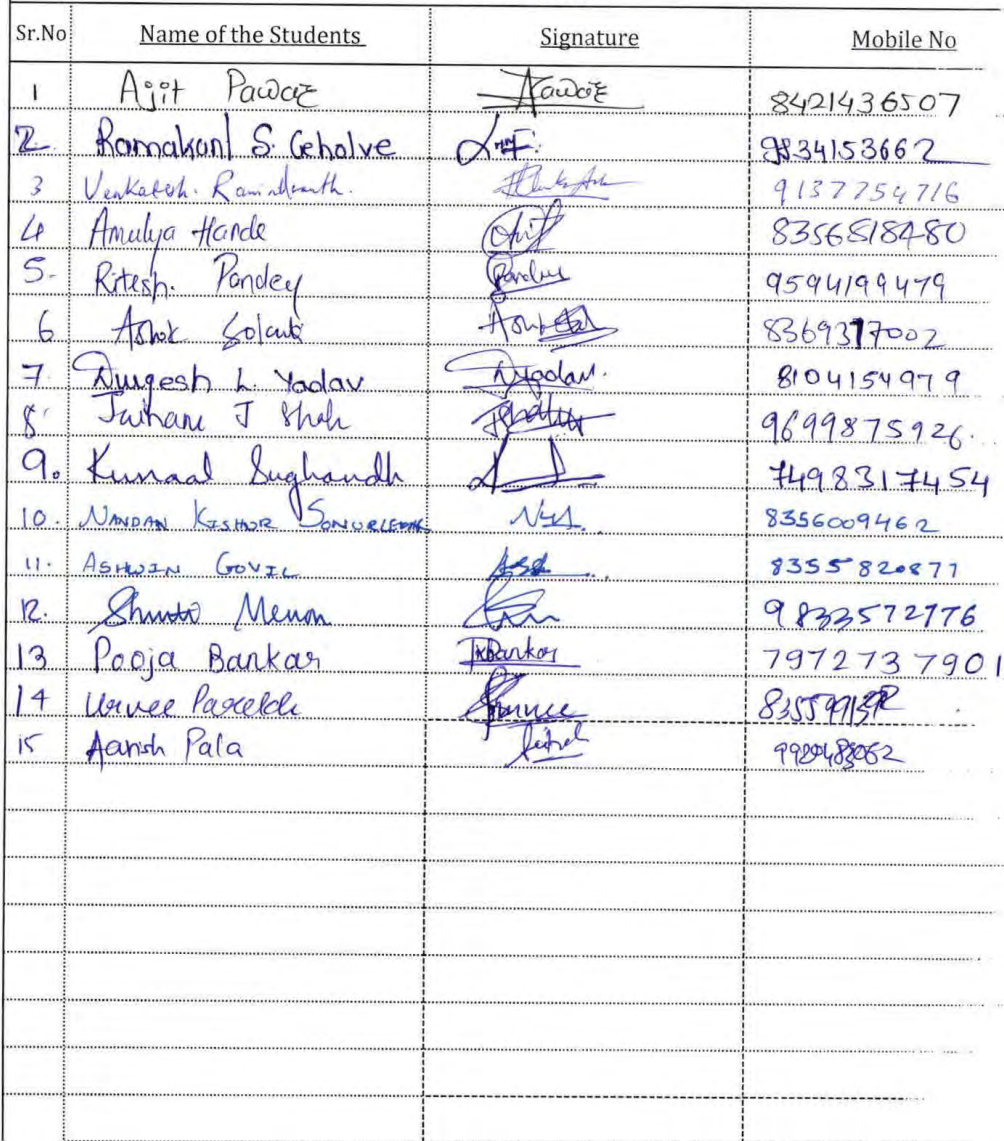 Sr.No Name of the Students Signature Mobile No
1 Ajit Pawar Pawar 8421436507
2. Ramakant S. Gholve 9834153662
3 Venkatesh. 9137754716
4 Amulya Hande 8356518480
5. Ritesh. Pandey Pandey 9594199479
6 Ashok Solanki Ashok 8369317002
7. Durgesh L. Yadav DYadav. 8104154979
8. J Shah 9699875926.
9. Kunaal Sughandh 7498317454
10. NANDAN KISHOR 8356009462
11. ASHWIN GOVIL 8355820877
12. Menon 9833572776
13 Pooja Bankar Bankar 7972737901
14 Urvee
15 Aansh Pala